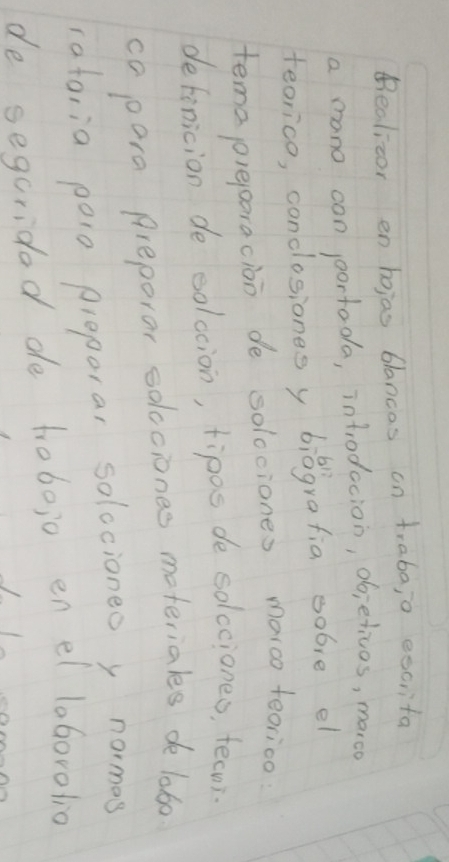 Realizar en hojas blancas un trabajo escrita
a mano con portada, introdocion, objetivos, marco
teorico, conclosiones y biografia sobre el
bli
tema preparación de solociones marco teorico:
definicion de solocion, tipos de solociones, tecni-
ca para preparar solociones materiales de labo
rataria para preparar solociones y normas
de seguridad de trabajo en el laboratio